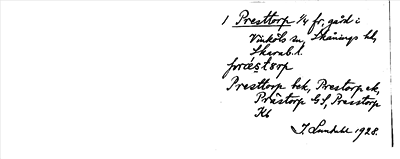 1 Presttorp 1/4 fr. gård i
Vinköls sn, Skånings hd,
Skarab. l.
Presttorp bek, Prestorp ek,
Prästorp GS, Presstorp
Kb
J. Lundahl 1928.